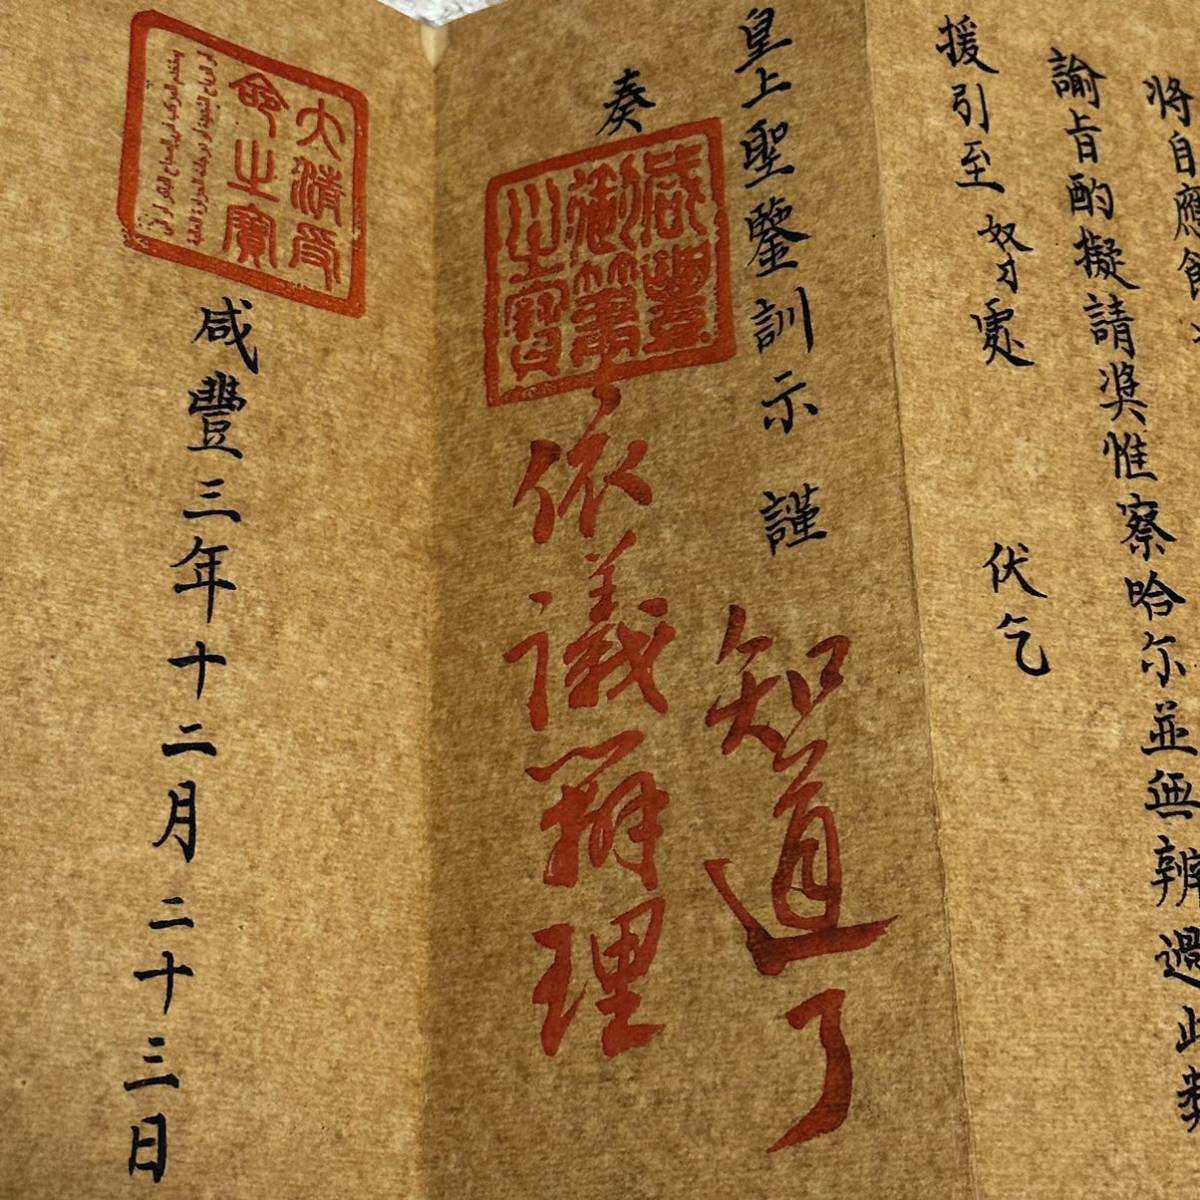 將自應飭
諭旨酌擬請奬惟察哈尔並無辨過此類
援引至奴才處 伏乞
皇上聖鑒訓示 謹
奏
知道了
依議辦理
咸豐御筆之寶
咸豐三年十二月二十三日
大清受命之寶